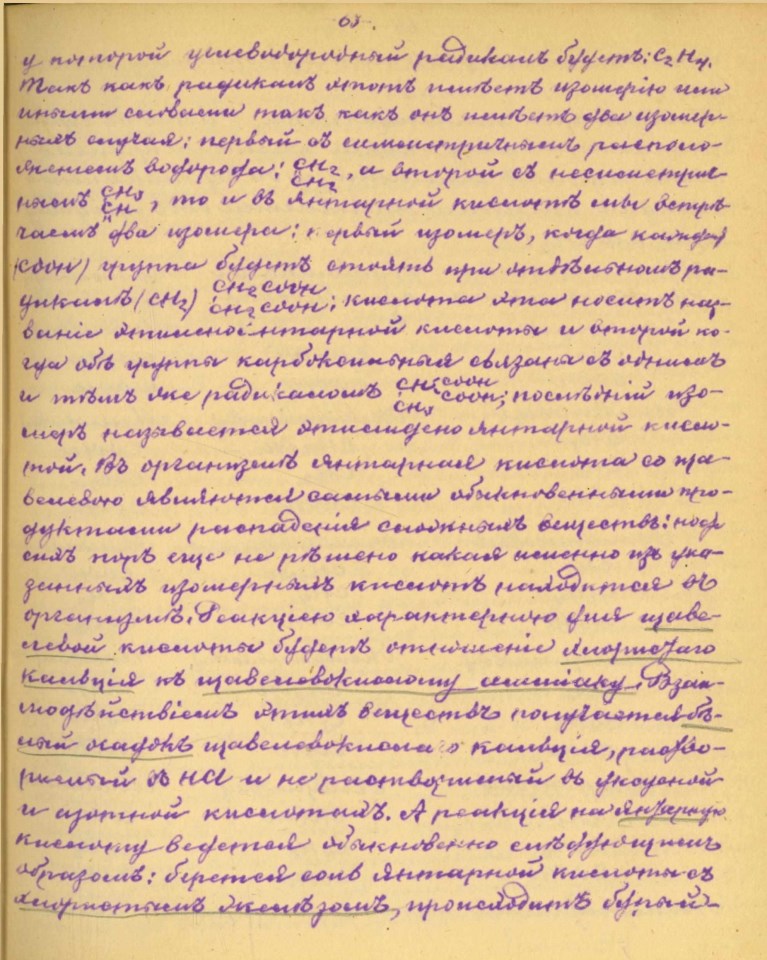 63.
у которой углеводородный радикалъ будетъ: C₂H₄.
Такъ какъ радикалъ этотъ имѣетъ изомерію или
иными словами такъ какъ онъ имѣетъ два изомер-
ныхъ случая: первый съ симметричнымъ располо-
женіемъ водорода: CH₂ CH₂, а второй съ несиметрич-
нымъ CH₃ CH, то и въ янтарной кислотѣ мы встрѣ-
чаемъ два изомера: первый изомеръ, когда каждая
(COOH) группа будетъ стоять при отдѣльномъ ра-
дикалѣ (CH₂) CH₂COOH CH₂COOH; кислота эта носитъ наз-
ваніе этиленоянтарной кислоты и второй ко-
гда обѣ группы карбоксильныя связаны съ однимъ
и тѣмъ же радикаломъ CH COOH COOH CH₃; послѣдній изо-
меръ называется этилидено янтарной кисло-
той. Въ организмѣ янтарная кислота со ща-
велевою являются самыми обыкновенными про-
дуктами распаденія сложныхъ веществъ: но до
сихъ поръ еще не рѣшено какая именно изъ ука-
занныхъ изомерныхъ кислотъ находится въ
организмѣ. Реакціею характерною для щаве-
левой кислоты будетъ отношеніе хлористаго
кальція къ щавелевокислому амміаку. Взаи-
модѣйствіемъ этихъ веществъ получается бѣ-
лый осадокъ щавелевокислаго кальція, раство-
римый въ HCl и не растворимый въ уксусной
и азотной кислотахъ. А реакція на янтарную
кислоту ведется обыкновенно слѣдующимъ
образомъ: берется соль янтарной кислоты съ
хлористымъ желѣзомъ, происходитъ бурый